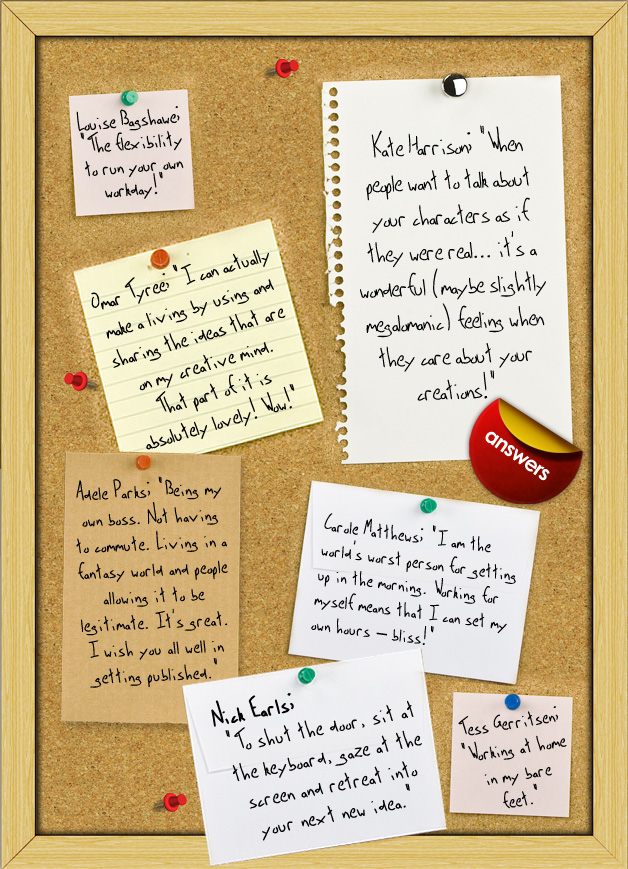 Louise Bagshawe;
"The flexibility
to run your own
workday!"
Kate Harrison; "When
people want to talk about
your characters as if
they were real... it's a
wonderful (maybe slightly
megalomanic) feeling when
they care about your
creations!"
answers
Omar Tyree; "I can actually
make a living by using and
sharing the ideas that are
on my creative mind.
That part of it is
absolutely lovely! Wow!"
Adele Parks; "Being my
own boss. Not having
to commute. Living in a
fantasy world and people
allowing it to be
legitimate. It's great.
I wish you all well in
getting published."
Carole Matthews; "I am the
world's worst person for getting
up in the morning. Working for
myself means that I can set my
own hours – bliss!"
Nick Earls;
"To shut the door, sit at
the keyboard, gaze at the
screen and retreat into
your next new idea."
Tess Gerritsen;
"Working at home
in my bare
feet."